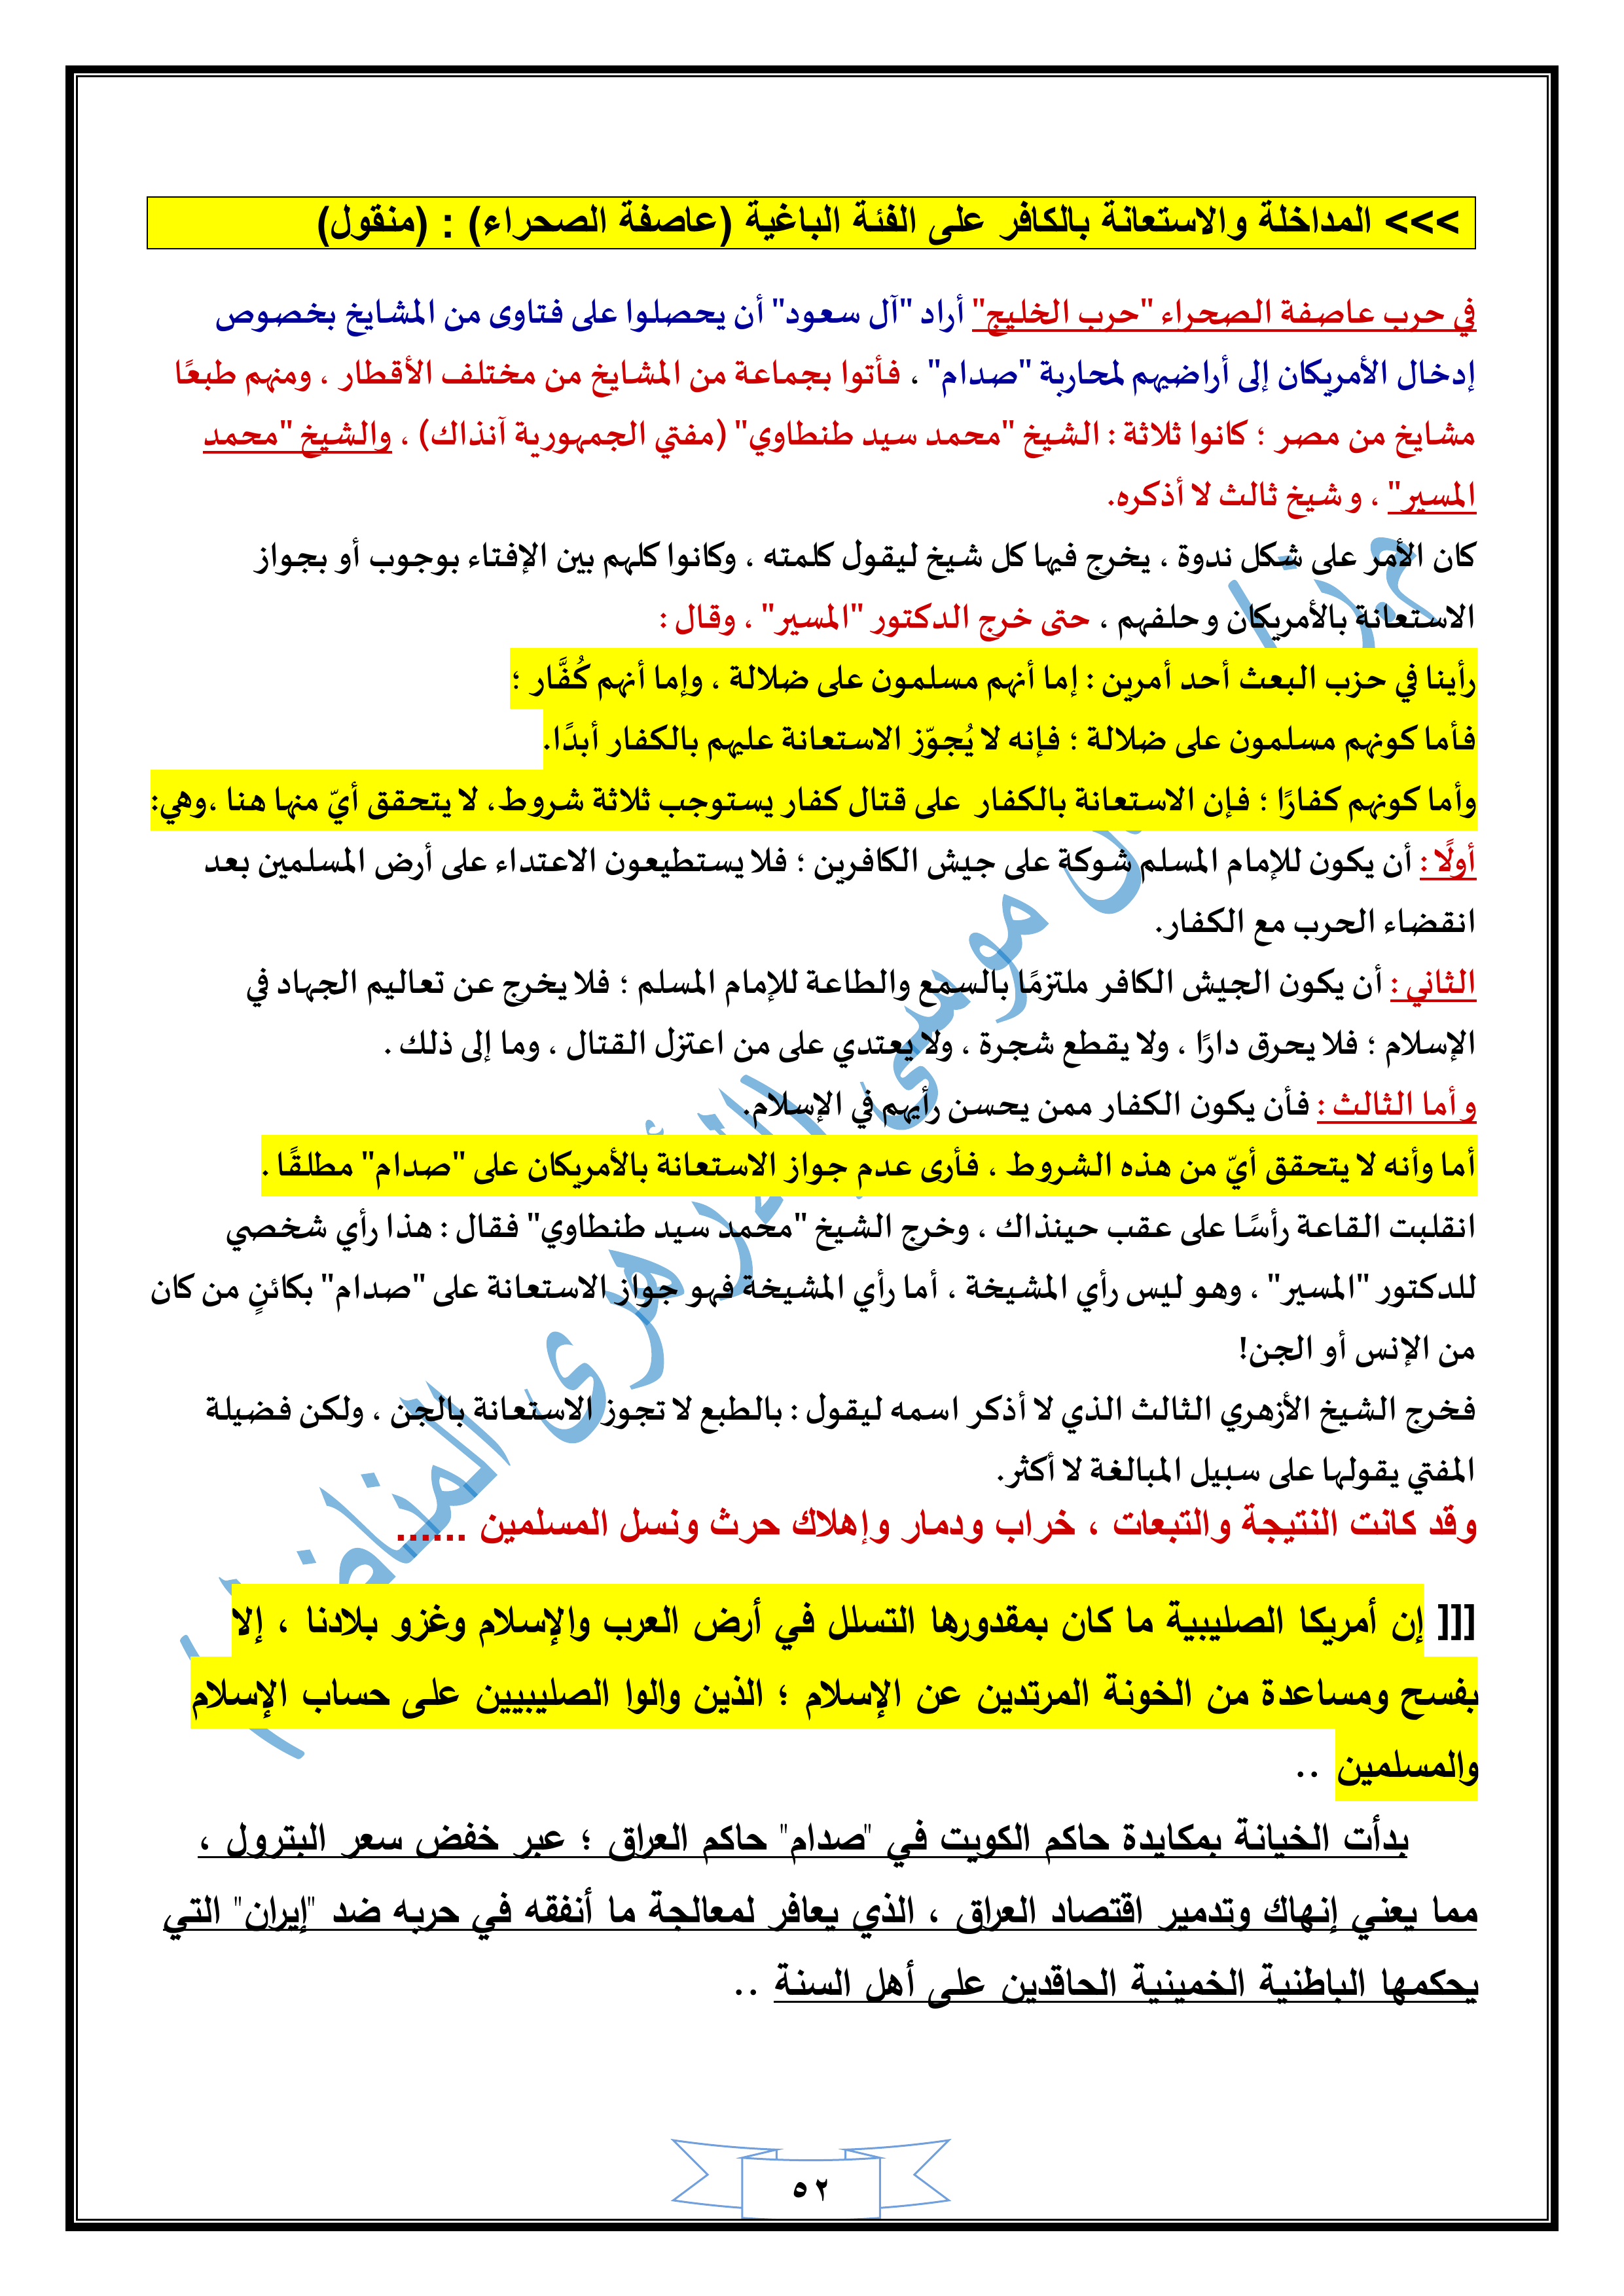 >>> المداخلة والاستعانة بالكافر على الفئة الباغية (عاصفة الصحراء) : (منقول)
في حرب عاصفة الصحراء "حرب الخليج" أراد "آل سعود" أن يحصلوا على فتاوى من المشايخ بخصوص
إدخال الأمريكان إلى أراضيهم لمحاربة "صدام" ، فأتوا بجماعة من المشايخ من مختلف الأقطار ، ومنهم طبعًا
مشايخ من مصر ؛ كانوا ثلاثة : الشيخ "محمد سيد طنطاوي" (مفتي الجمهورية آنذاك) ، والشيخ "محمد
المسير" ، و شيخ ثالث لا أذكره.
كان الأمر على شكل ندوة ، يخرج فيها كل شيخ ليقول كلمته ، وكانوا كلهم بين الإفتاء بوجوب أو بجواز
الاستعانة بالأمريكان و حلفهم ، حتى خرج الدكتور "المسير" ، وقال :
رأينا في حزب البعث أحد أمرين : إما أنهم مسلمون على ضلالة ، وإما أنهم كُفَّار ؛
فأما كونهم مسلمون على ضلالة ؛ فإنه لا يُجوّز الاستعانة عليهم بالكفار أبدًا.
وأما كونهم كفارًا ؛ فإن الاستعانة بالكفار على قتال كفار يستوجب ثلاثة شروط، لا يتحقق أيّ منها هنا ،وهي:
أولًا : أن يكون للإمام المسلم شوكة على جيش الكافرين ؛ فلا يستطيعون الاعتداء على أرض المسلمين بعد
انقضاء الحرب مع الكفار.
الثاني : أن يكون الجيش الكافر ملتزمًا بالسمع والطاعة للإمام المسلم ؛ فلا يخرج عن تعاليم الجهاد في
الإسلام ؛ فلا يحرق دارًا ، ولا يقطع شجرة ، ولا يعتدي على من اعتزل القتال ، وما إلى ذلك .
و أما الثالث : فأن يكون الكفار ممن يحسن رأيهم في الإسلام.
أما وأنه لا يتحقق أيّ من هذه الشروط ، فأرى عدم جواز الاستعانة بالأمريكان على "صدام" مطلقًا .
انقلبت القاعة رأسًا على عقب حينذاك ، وخرج الشيخ "محمد سيد طنطاوي" فقال : هذا رأي شخصي
للدكتور "المسير" ، وهو ليس رأي المشيخة ، أما رأي المشيخة فهو جواز الاستعانة على "صدام" بكائنٍ من كان
من الإنس أو الجن!
فخرج الشيخ الأزهري الثالث الذي لا أذكر اسمه ليقول : بالطبع لا تجوز الاستعانة بالجن ، ولكن فضيلة
المفتي يقولها على سبيل المبالغة لا أكثر.
وقد كانت النتيجة والتبعات ، خراب ودمار وإهلاك حرث ونسل المسلمين ......
[[[ إن أمريكا الصليبية ما كان بمقدورها التسلل في أرض العرب والإسلام وغزو بلادنا ، إلا
بفسح ومساعدة من الخونة المرتدين عن الإسلام ؛ الذين والوا الصليبيين على حساب الإسلام
والمسلمين ..
بدأت الخيانة بمكايدة حاكم الكويت في "صدام" حاكم العراق ؛ عبر خفض سعر البترول ،
مما يعني إنهاك وتدمير اقتصاد العراق ، الذي يعافر لمعالجة ما أنفقه في حربه ضد "إيران" التي
يحكمها الباطنية الخمينية الحاقدين على أهل السنة ..
٥٢